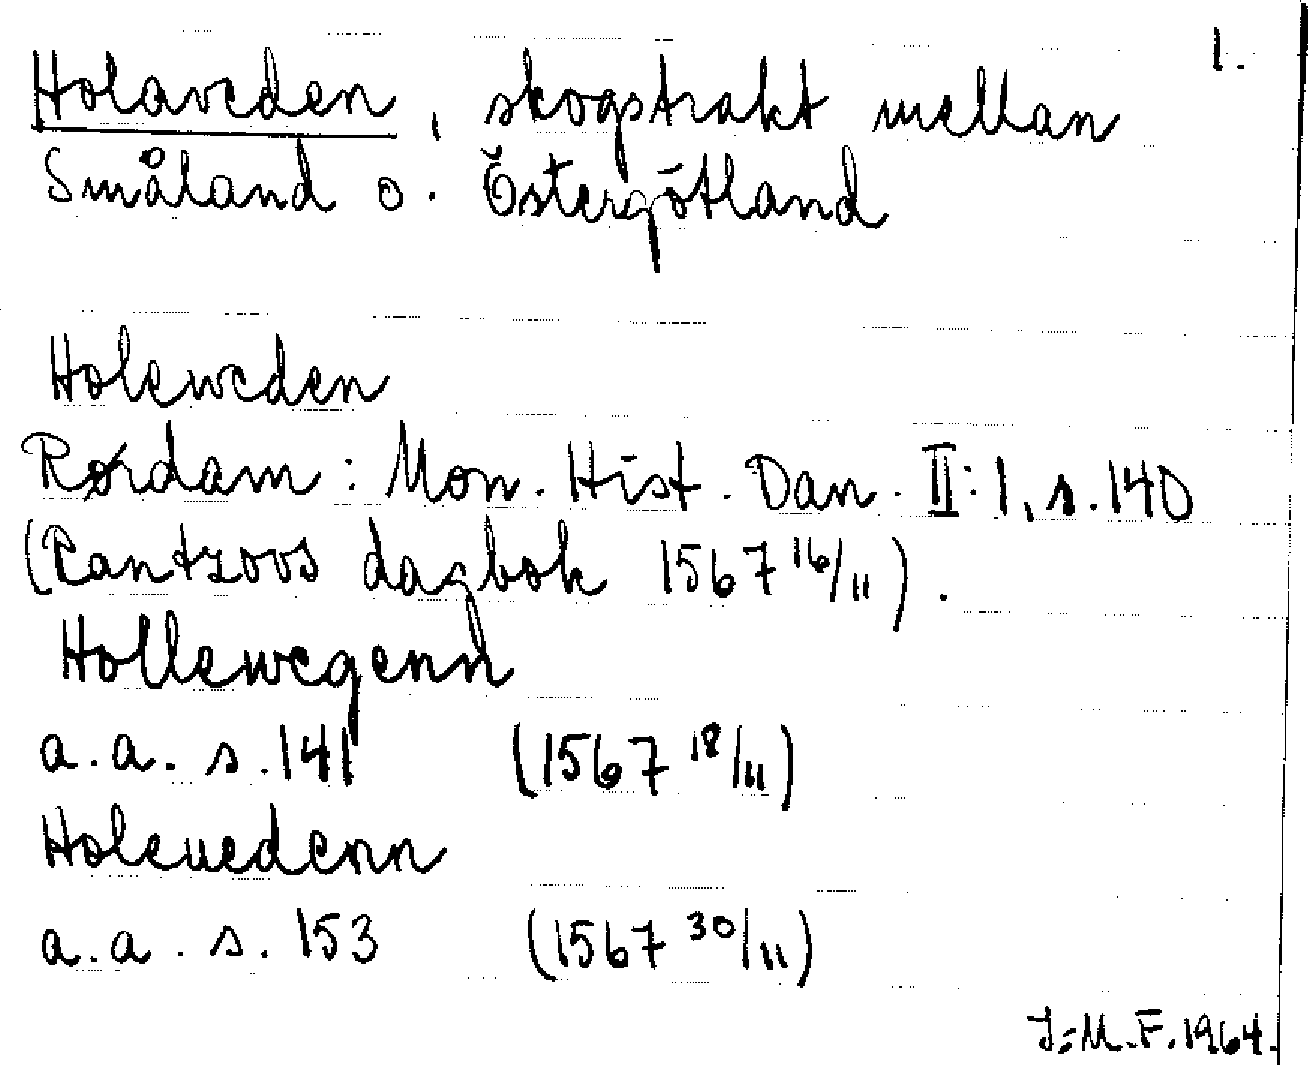 1.
Holaveden, skogstrakt mellan
Småland o. Östergötland
Holeweden
Rørdam: Mon. Hist. Dan. II:1, s. 140
(Rantzovs dagbok 1567 16/11).
Hollewegenn
a.a. s. 141 (1567 18/11)
Holeuedenn
a.a. s. 153 (1567 30/11)
J:M.F. 1964.